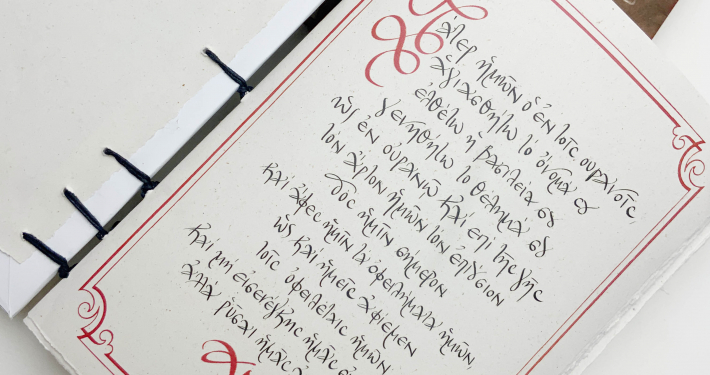 Πάτερ ἡμῶν ὁ ἐν τοῖς οὐρανοῖς
ἁγιασθήτω τὸ ὄνομά σου
ἐλθέτω ἡ βασιλεία σου
γενηθήτω τὸ θέλημά σου
ὡς ἐν οὐρανῷ καὶ ἐπὶ τῆς γῆς
τὸν ἄρτον ἡμῶν τὸν ἐπιούσιον
δὸς ἡμῖν σήμερον
καὶ ἄφες ἡμῖν τὰ ὀφειλήματα ἡμῶν,
ὡς καὶ ἡμεῖς ἀφίεμεν
τοῖς ὀφειλέταις ἡμῶν
καὶ μὴ εἰσενέγκῃς ἡμᾶς
ἀλλὰ ῥῦσαι ἡμᾶς